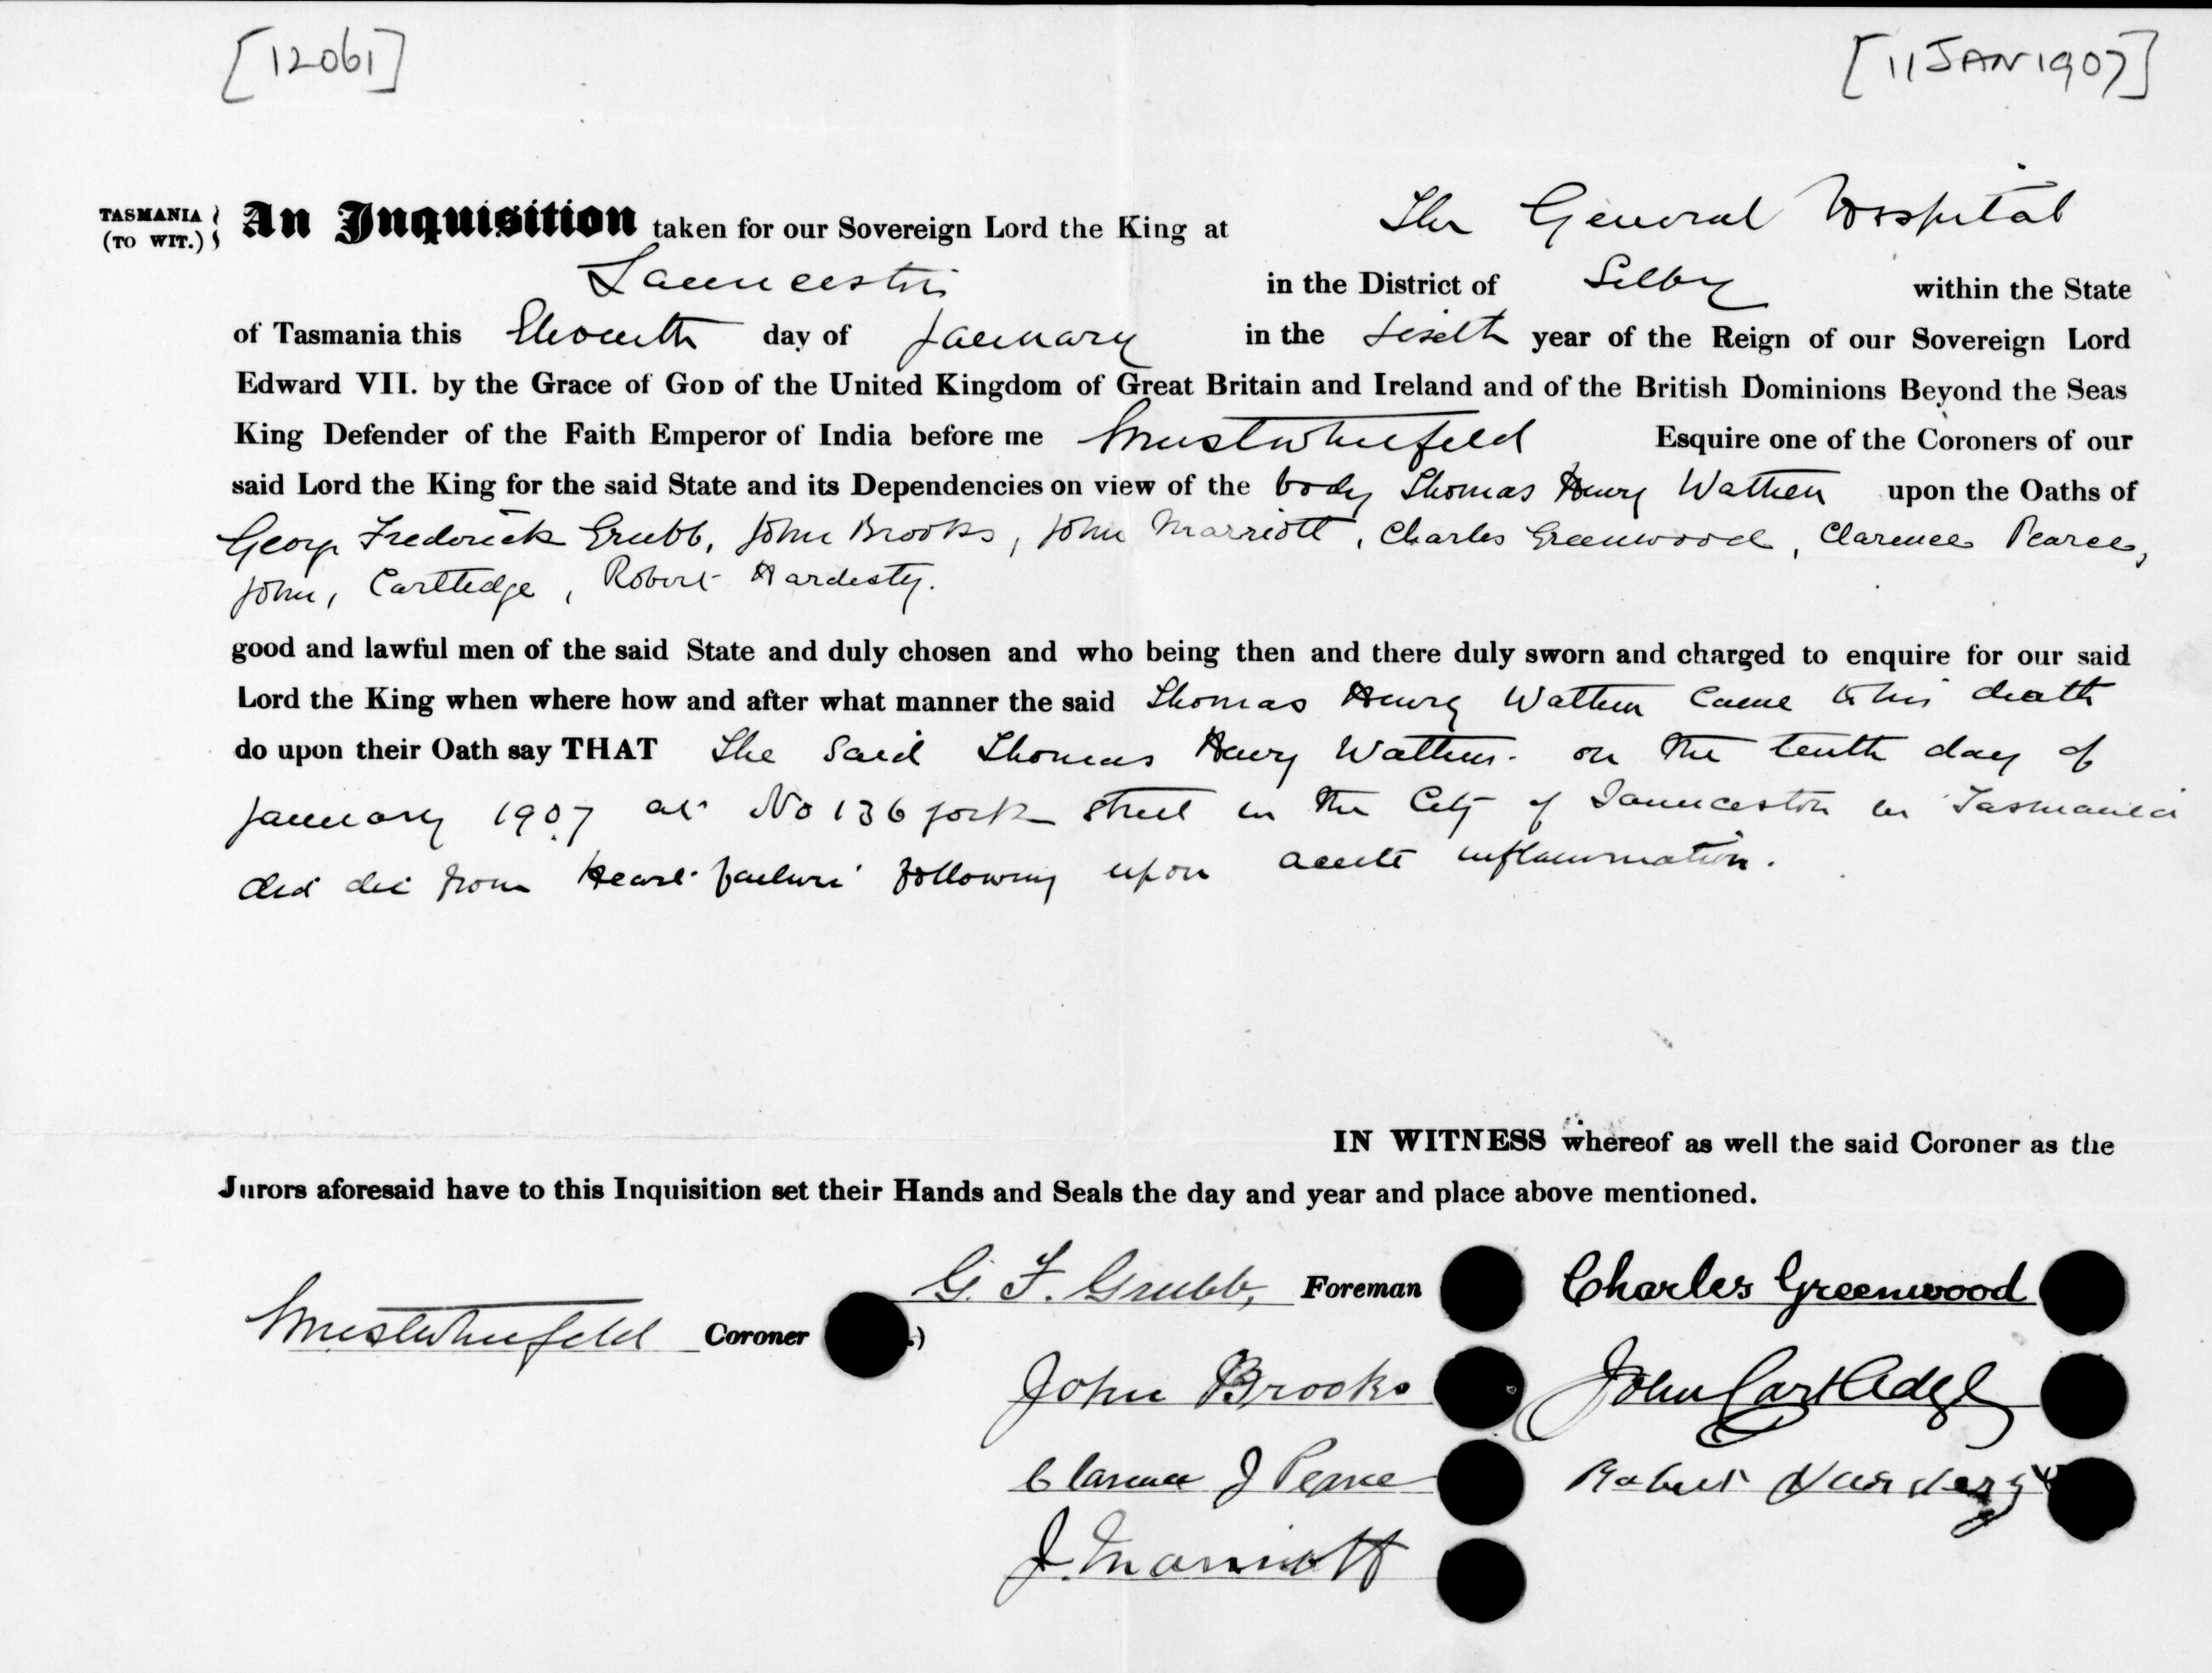 [12061]
[11 JAN 1907]
TASMANIA
(TO WIT.)
An Inquisition taken for our Sovereign Lord the King at The General Hospital
Launceston in the District of Selby within the State
of Tasmania this Eleventh day of January in the Sixth year of the Reign of our Sovereign Lord
Edward VII. by the Grace of GOD of the United Kingdom of Great Britain and Ireland and of the British Dominions Beyond the Seas
King Defender of the Faith Emperor of India before me Esquire one of the Coroners of our
said Lord the King for the said State and its Dependencies on view of the body Thomas Henry Wathen upon the Oaths of
George Frederick Grubb, John Brooks, John Marriott, Charles Greenwood, Clarence Pearce,
John, Cartledge, Robert Hardesty.
good and lawful men of the said State and duly chosen and who being then and there duly sworn and charged to enquire for our said
Lord the King when where how and after what manner the said Thomas Henry Wathen came to his death
do upon their Oath say THAT The said Thomas Henry Wathen on the tenth day of
January 1907 at No 136 York Street in the City of Launceston in Tasmania
did die from Heart failure following upon acute inflammation.
IN WITNESS whereof as well the said Coroner as the
Jurors aforesaid have to this Inquisition set their Hands and Seals the day and year and place above mentioned.
G. F. Grubb, Foreman Charles Greenwood
Coroner .)
John Brooks John Cartledge
Clarence J Pearce Robert Hardesty
J. Marriott